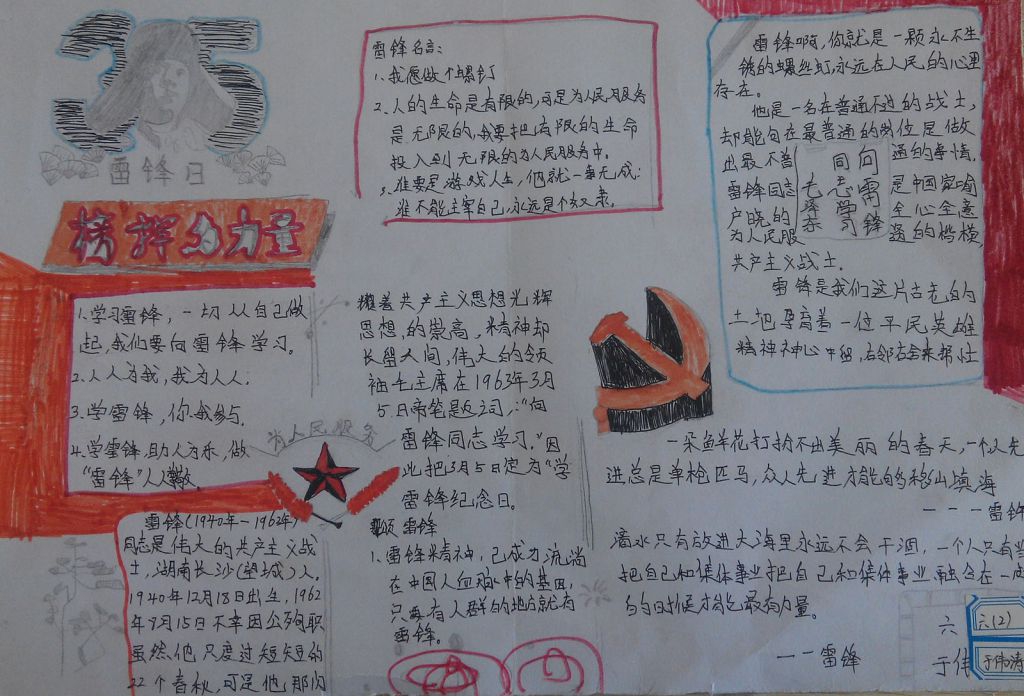 35
雷锋日
榜样的力量
1.学习雷锋，一切从自己做
起，我们要向雷锋学习。
2.人人为我，我为人人.
3.学雷锋，你我参与.
4.学雷锋，助人为乐，做
"雷锋"人人
雷锋(1940年-1962年)
同志是伟大的共产主义战
士，湖南长沙(望城)人.
1940年12月18日出生，1962
年 月15日不幸因公殉职
虽然他只度过短短的
22个春秋，可是他那
雷锋名言:
1、我愿做个螺钉
2、人的生命是有限的，可是为人民服务
是无限的，我要把有限的生命
投入到无限的为人民服务中。
3、谁要是游戏人生，他就一事无成;
谁不能主宰自己，永远是个奴隶。
共产主义思想光辉
思想，的崇高，精神却
长留人间，伟大的领
袖毛主席在1963年3月
5日 笔题词:"向
雷锋同志学习."因
此把3月5日定为"学
雷锋纪念日。
为人民服务
雷锋
1、雷锋精神，已成为流淌
在中国人血脉中的基因，
只要有人群的地方就有
雷锋。
雷锋啊，你就是一颗永不生
锈的螺丝钉，永远在人民的心里
存在。
他是一名在普通不过的战士，
却能勾在最普通的岗位是做
出最不普 通的事情.
雷锋同志 是中国家喻
户晓的 全心全意
为人民服 的楷模，
共产主义战士.
向雷锋
同志学习
毛泽东
雷锋是我们这片古老的
土地孕育着一位平民英雄
精神
一朵鲜花打扮不出美丽的春天，一个人先
进总是单枪匹马，众人先进才能的移山填海
---雷锋
滴水只有放进大海里永远不会干涸，一个人只有当
把自己和集体事业把自己和集体事业融合在一
的时候才能最有力量。
--雷锋
六
六(2)
于伟
于伟涛